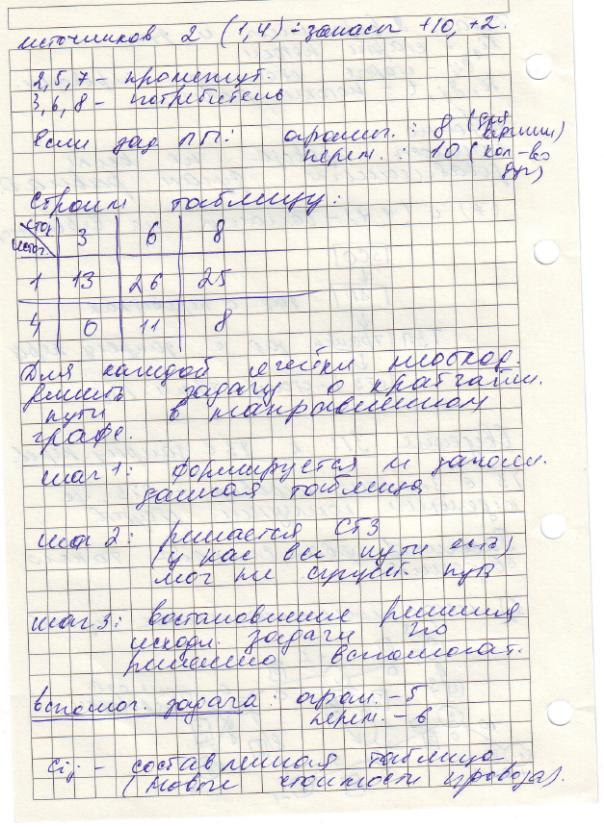 источников 2 (1,4) - запасы +10, +2.
2,5,7 - промежут.
3,6,8 - потребитель
если зад ЛП: огранич. : 8 (для вершин)
перем. : 10 (кол-во дуг)
Строим таблицу:
сток
источ. 3 6 8
1 13 26 25
4 0 11 8
Для каждой ячейки необход.
решить задачу о кратчайш.
пути в направленном
графе.
шаг 1: формируется и заполн.
данная таблица
шаг 2: решается СТЗ
(у нас все пути есть)
мог не сущест. путь
шаг 3: востановление решения
исходн. задачи по
решению вспомогат.
вспомог. задача : огран. - 5
перем. - 6
Cij - составленная таблица
(новые стоимости провоза).